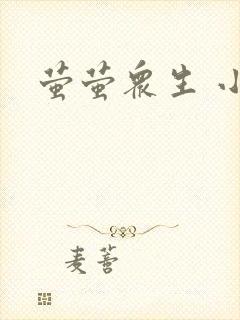 萤萤众生 小
麦蔷